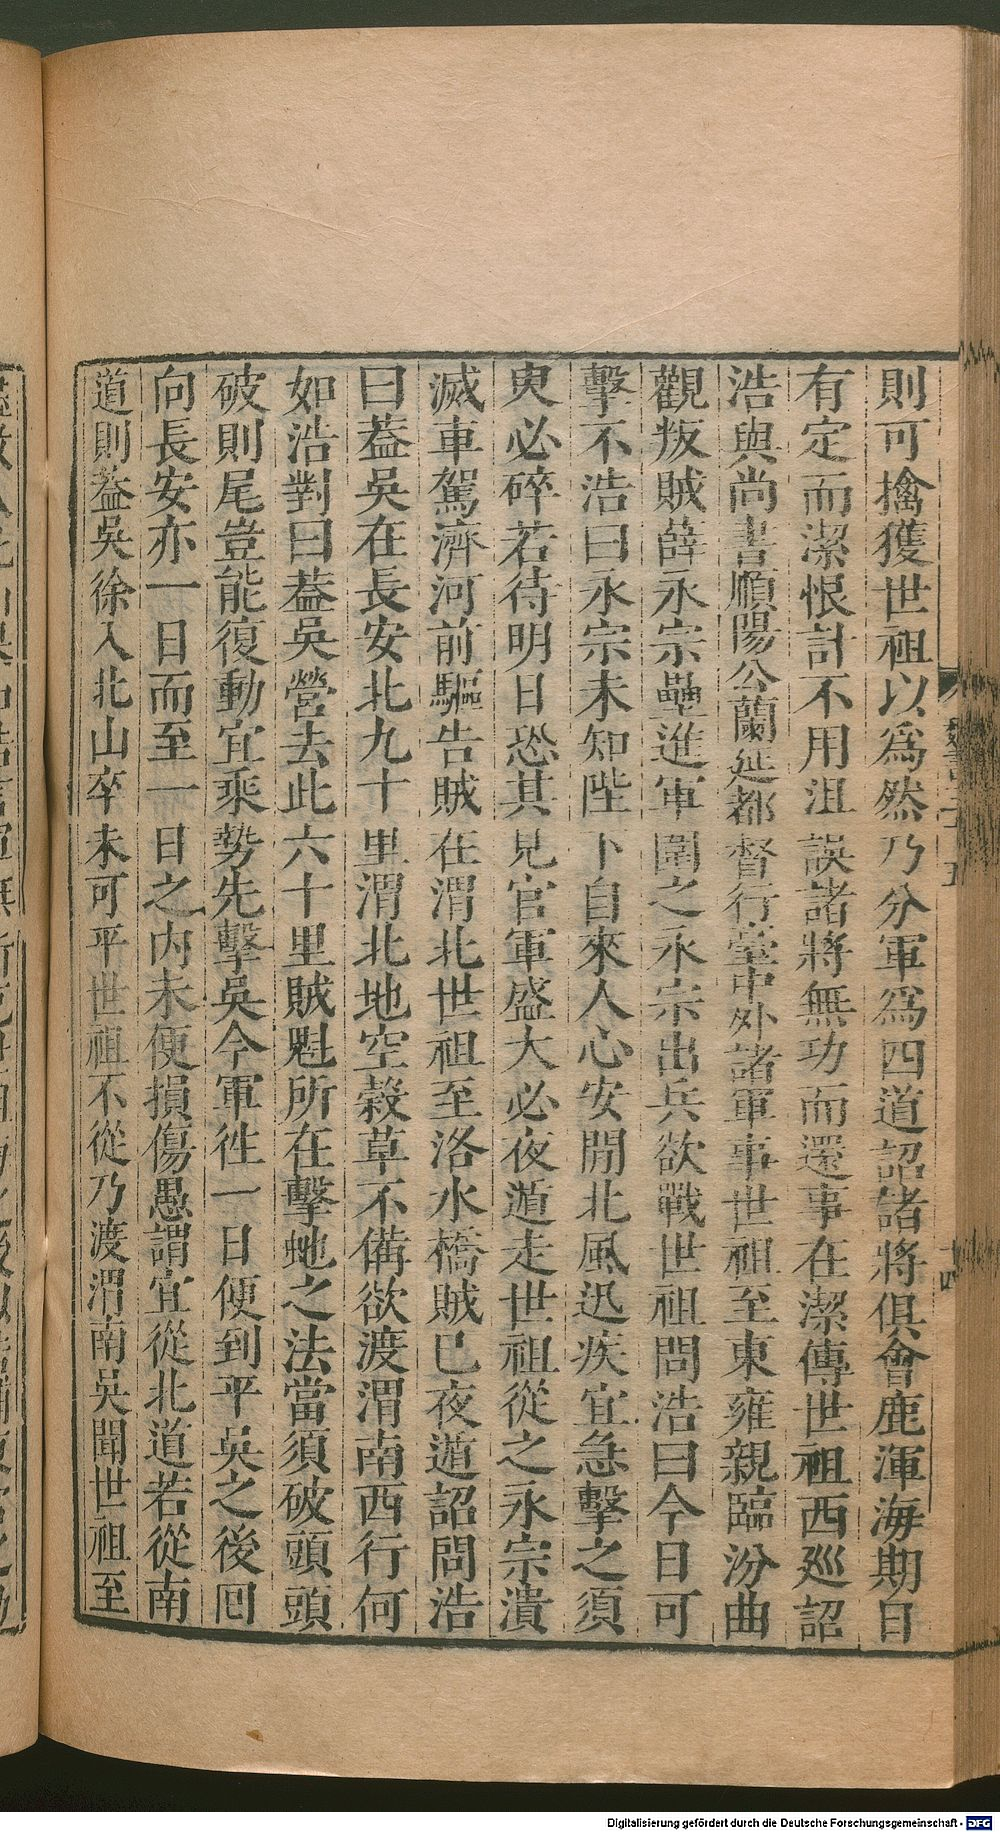 則可擒獲世祖以爲然乃分軍爲四道詔諸將俱會鹿渾海期日
有定而潔恨計不用沮誤諸將無功而還事在潔傳世祖西廵詔
浩與尚書順陽公蘭延都督行臺中外諸軍事世祖至東雍親臨汾曲
觀叛賊薛永宗壘進軍圍之永宗出兵欲戰世祖問浩曰今日可
擊不浩曰永宗未知陛下自來人心安閒北風迅疾宜急擊之須
臾必碎若待明日恐其見官軍盛大必夜遁走世祖從之永宗潰
滅車駕濟河前驅告賊在渭北世祖至洛水橋賊已夜遁詔問浩
曰葢吳在長安北九十里渭北地空穀草不備欲渡渭南西行何
如浩對曰葢吳營去此六十里賊魁所在擊虵之法當須破頭頭
破則尾豈能復動宜乘勢先擊吳今軍徃一日便到平吳之後囘
向長安亦一日而至一日之內未便損傷愚謂宜從北道若從南
道則葢吳徐入北山卒未可平世祖不從乃渡渭南吳聞世祖至
Digitalisierung gefördert durch die Deutsche Forschungsgemeinschaft - DFG